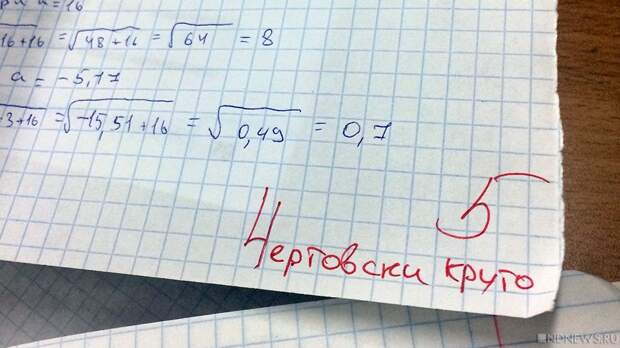 при a = 16
16+16 = √48+16 = √64 = 8
a = -5,17
-3+16 = √-15,51+16 = √0,49 = 0,7
5
Чертовски круто
NDNEWS.RU